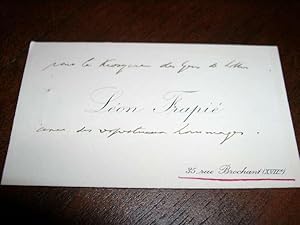 pour le Kiosque des Gens de Lettres
Léon Frapié
avec ses respectueux hommages.
35 rue Brochant (XVIIe)